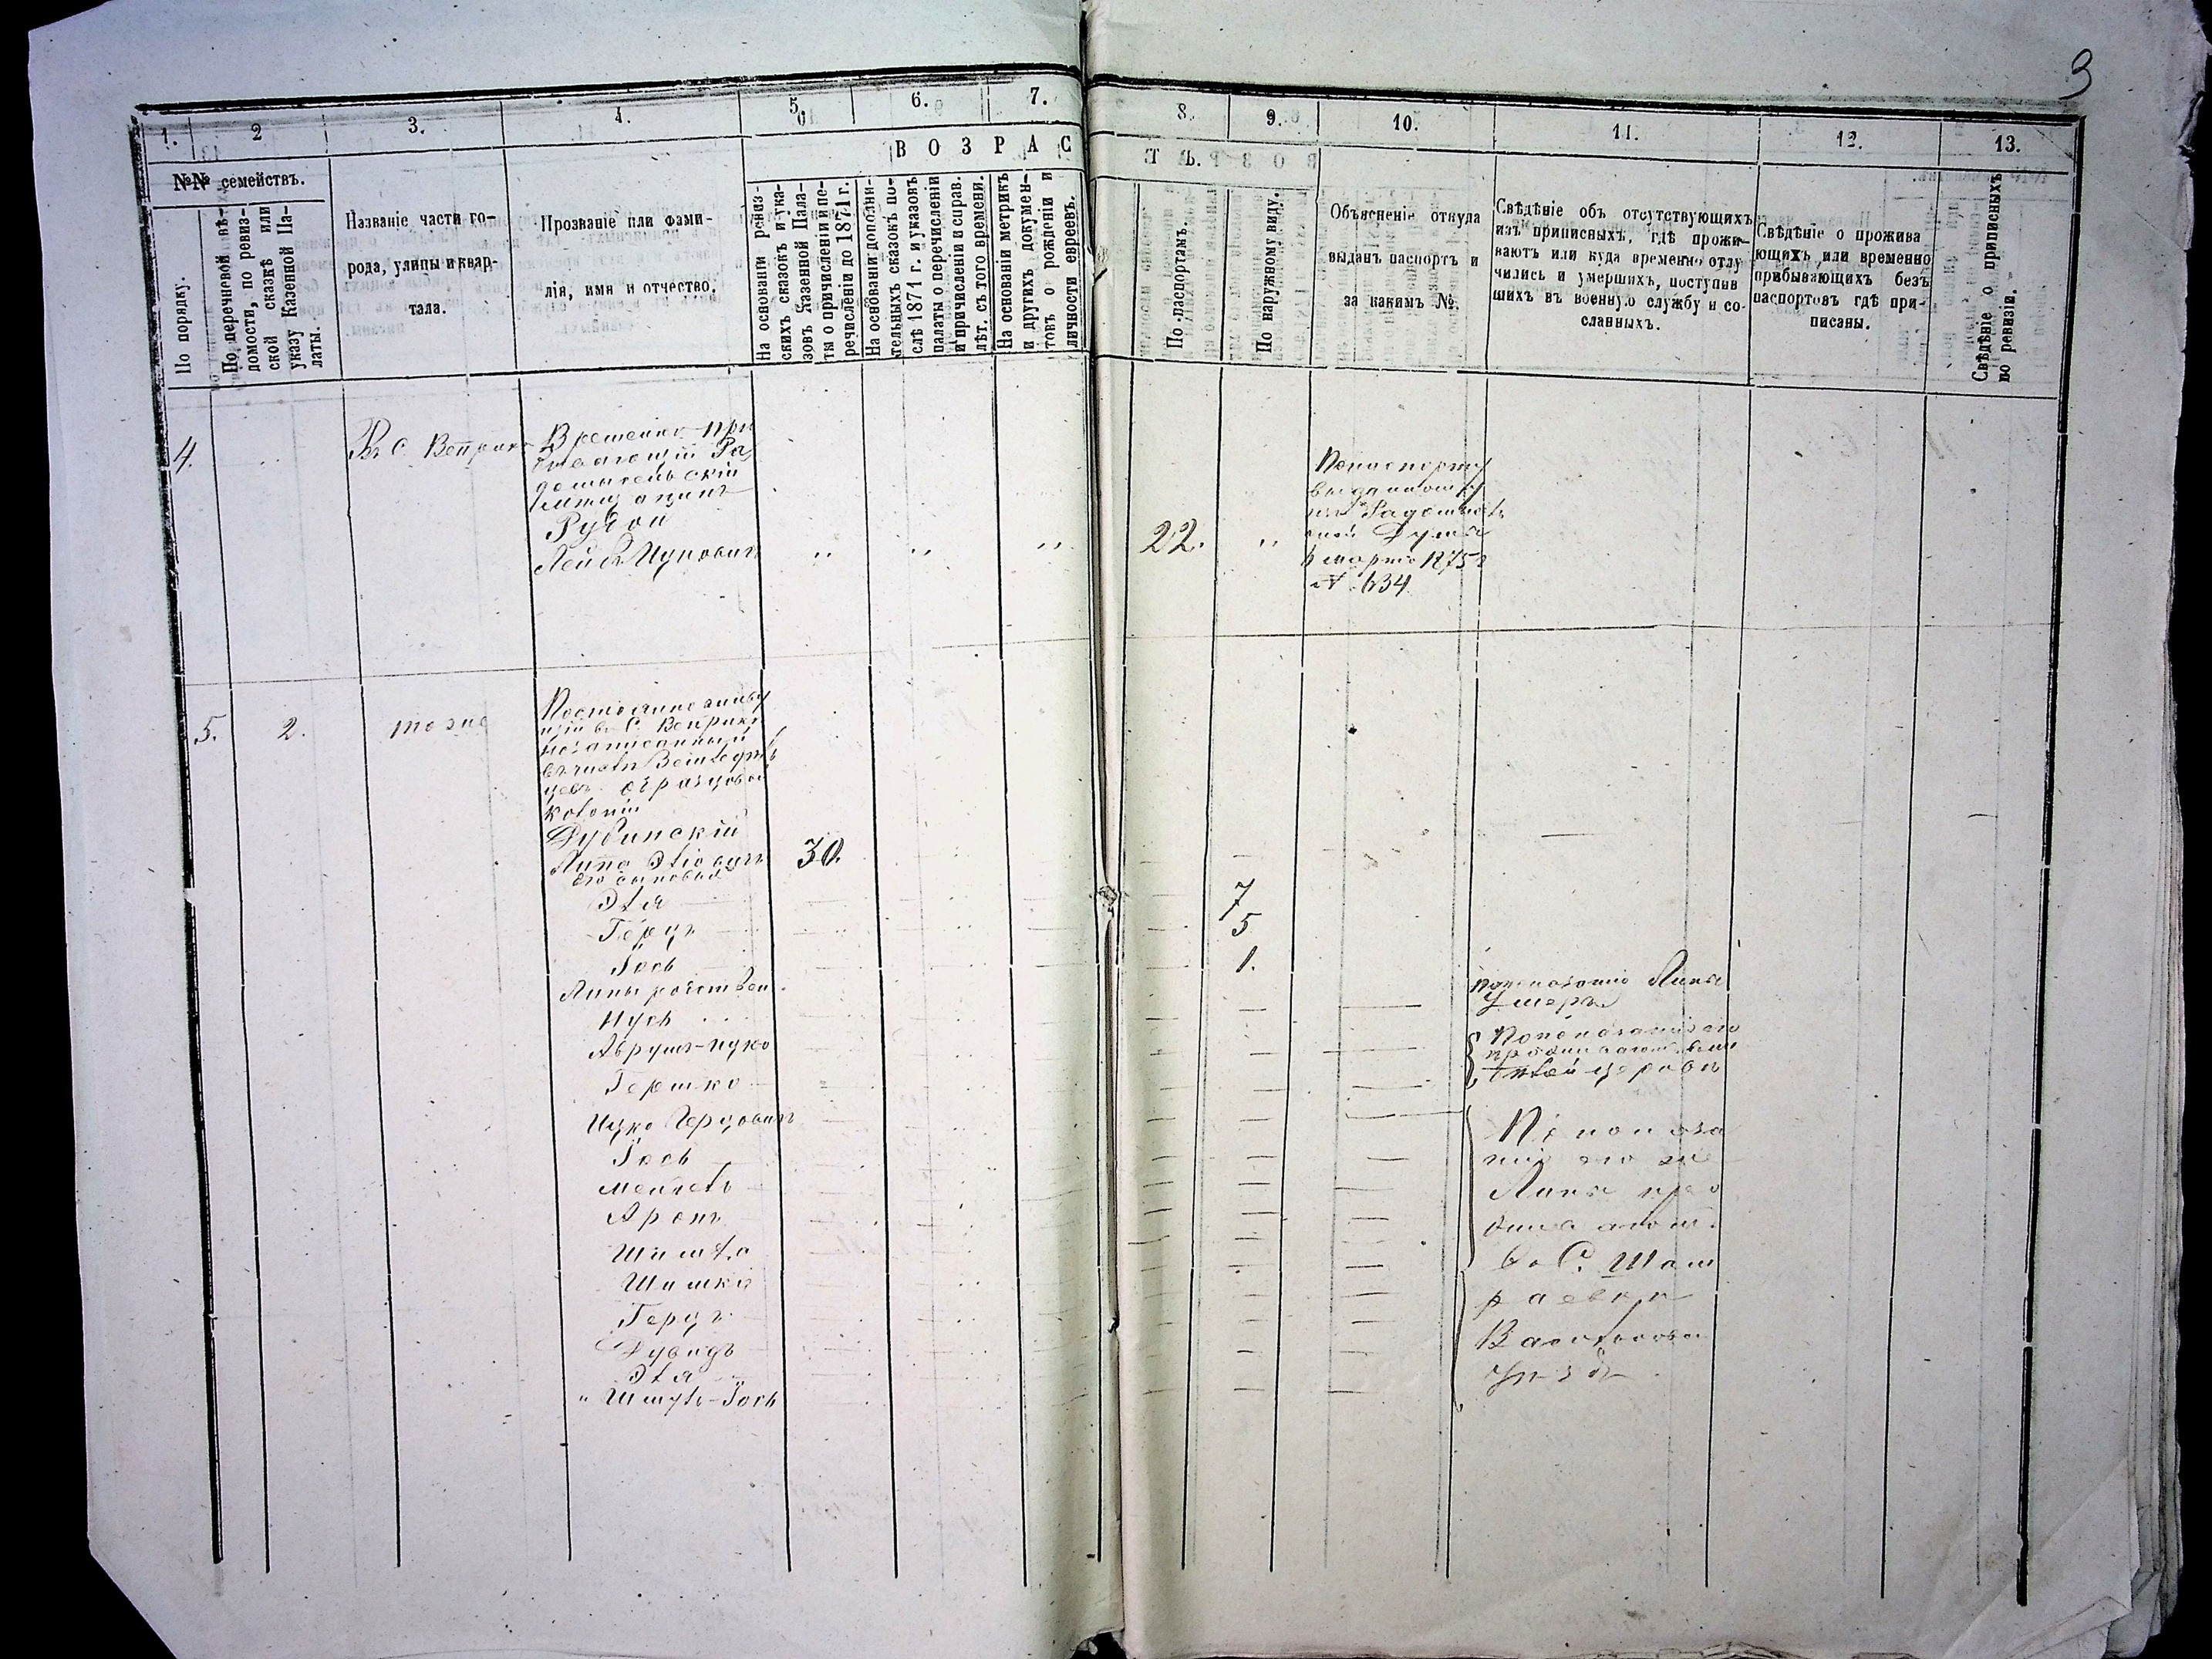 9
1.
2
3.
4.
5.
6.
7.
8.
9.
10.
11.
12.
13.
В О З Р А С
Т Ъ.
№№ семействъ.
По порядку.
По перечневой вѣ-
домости, по ревиз-
ской сказкѣ или
указу Казенной Па-
латы.
Названіе части го-
рода, улицы и квар-
тала.
Прозваніе или фами-
лія, имя и отчество.
На основаніи ревиз-
скихъ сказокъ и ука-
зовъ Казенной Пала-
ты о причисленіи и пе-
речисленіи до 1871 г.
На основаніи дополни-
тельныхъ сказокъ по-
слѣ 1871 г. и указовъ
палаты о перечисленіи
и причисленіи и справ.
лѣт. съ того времени.
На основаніи метрикъ
и другихъ докумен-
товъ о рожденіи и
личности евреевъ.
По паспортамъ.
По наружному виду.
Объясненіе откуда
выданъ паспортъ и
за какимъ №.
Свѣдѣніе объ отсутствующихъ
изъ приписныхъ, гдѣ прожи-
ваютъ или куда временно отлу
чились и умершихъ, поступив
шихъ въ военную службу и со-
сланныхъ.
Свѣдѣніе о прожива
ющихъ или временно
прибывающихъ безъ
паспортовъ гдѣ при-
писаны.
Свѣдѣніе о приписныхъ
по ревизіи.
4.
Въ С. Веприкѣ
Временно про
живающій Ра
домысльскій
мѣщанинъ
Рудой
Лейба Ицковичъ
22.
По паспорту
выданному
изъ Радомысль
ской Думы
марта 1875 г
№ 634
5.
2.
тоже
Постоянно живу
щій въ С. Веприкѣ
незаписанный
образцовой
колоніи
Дубинскій
Липа Эліовичъ
30.
его сыновья
Эля
7
Герцъ
5
Іось
1.
Липы родствен.
Нусь
по показанію Липы
Умеръ
Аврумъ-Ицко
По показанію его
проживаютъ въ Бѣ
лой церкви
Гершко
Ицко Герцовичъ
Іось
Мендель
Аронъ
Шимха
Шимки
Герцъ
Дувидъ
Эля
" Шмуль-Іось
По показа
нію его же
Липы про
живаютъ
въ С. Шам
раевкѣ
Васильков.
Уѣзд